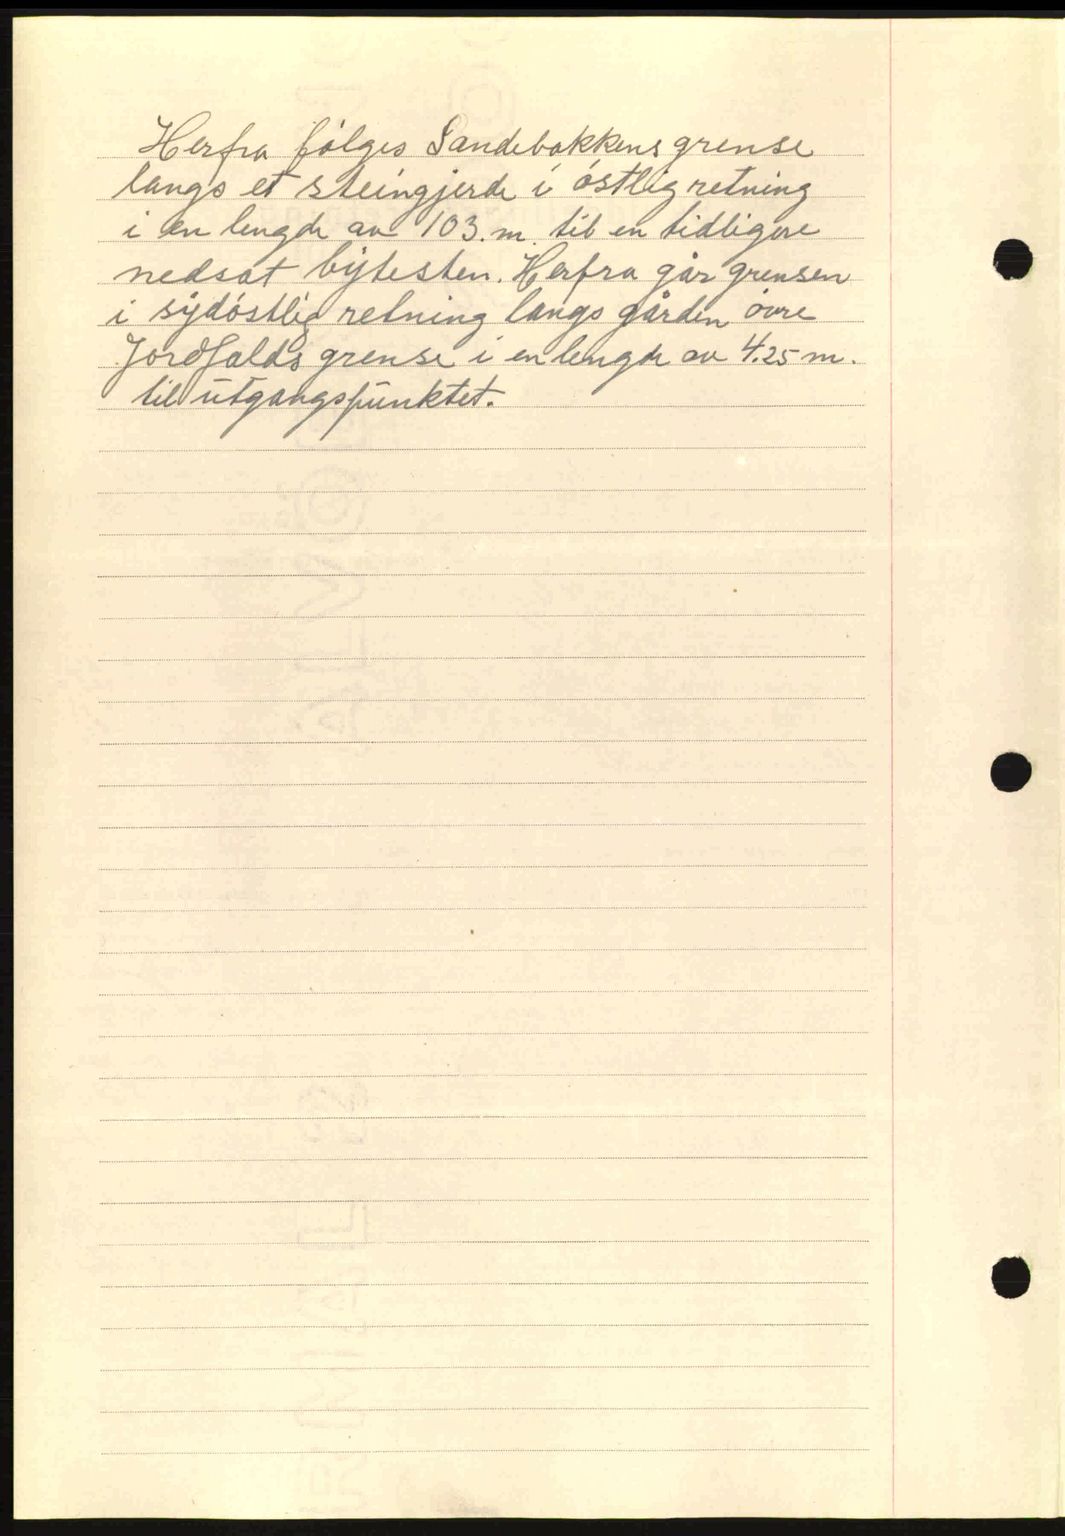 Herfra følges Sandebakkens grense
langs et steingjerde i östlig retning
i en lengde av 103.m. til en tidligere
nedsat bytesten. Herfra går grensen
i sydöstlig retning langs gården övre
Jordfalds grense i en lengde av 4.25 m.
til utgangspunktet.